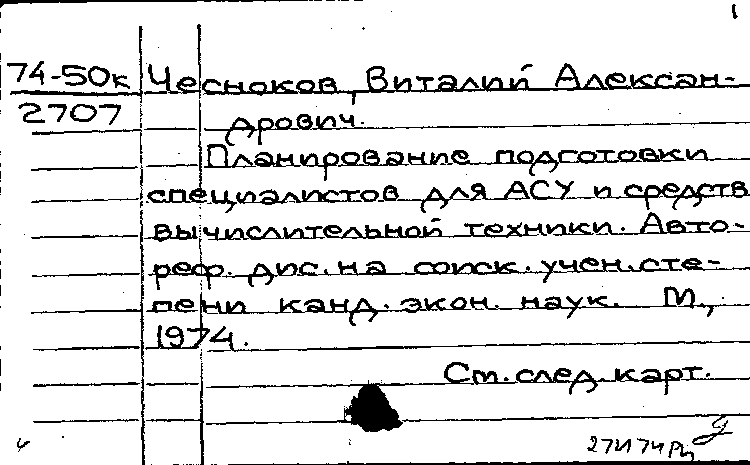 1
74-50к Чесноков, Виталий Алексан-
2707 дрович.
Планирование подготовки
специалистов для АСУ и средств
вычислительной техники. Авто-
реф. дис. на соиск. учен. сте-
пени канд. экон. наук. М.,
1974.
См. след. карт.